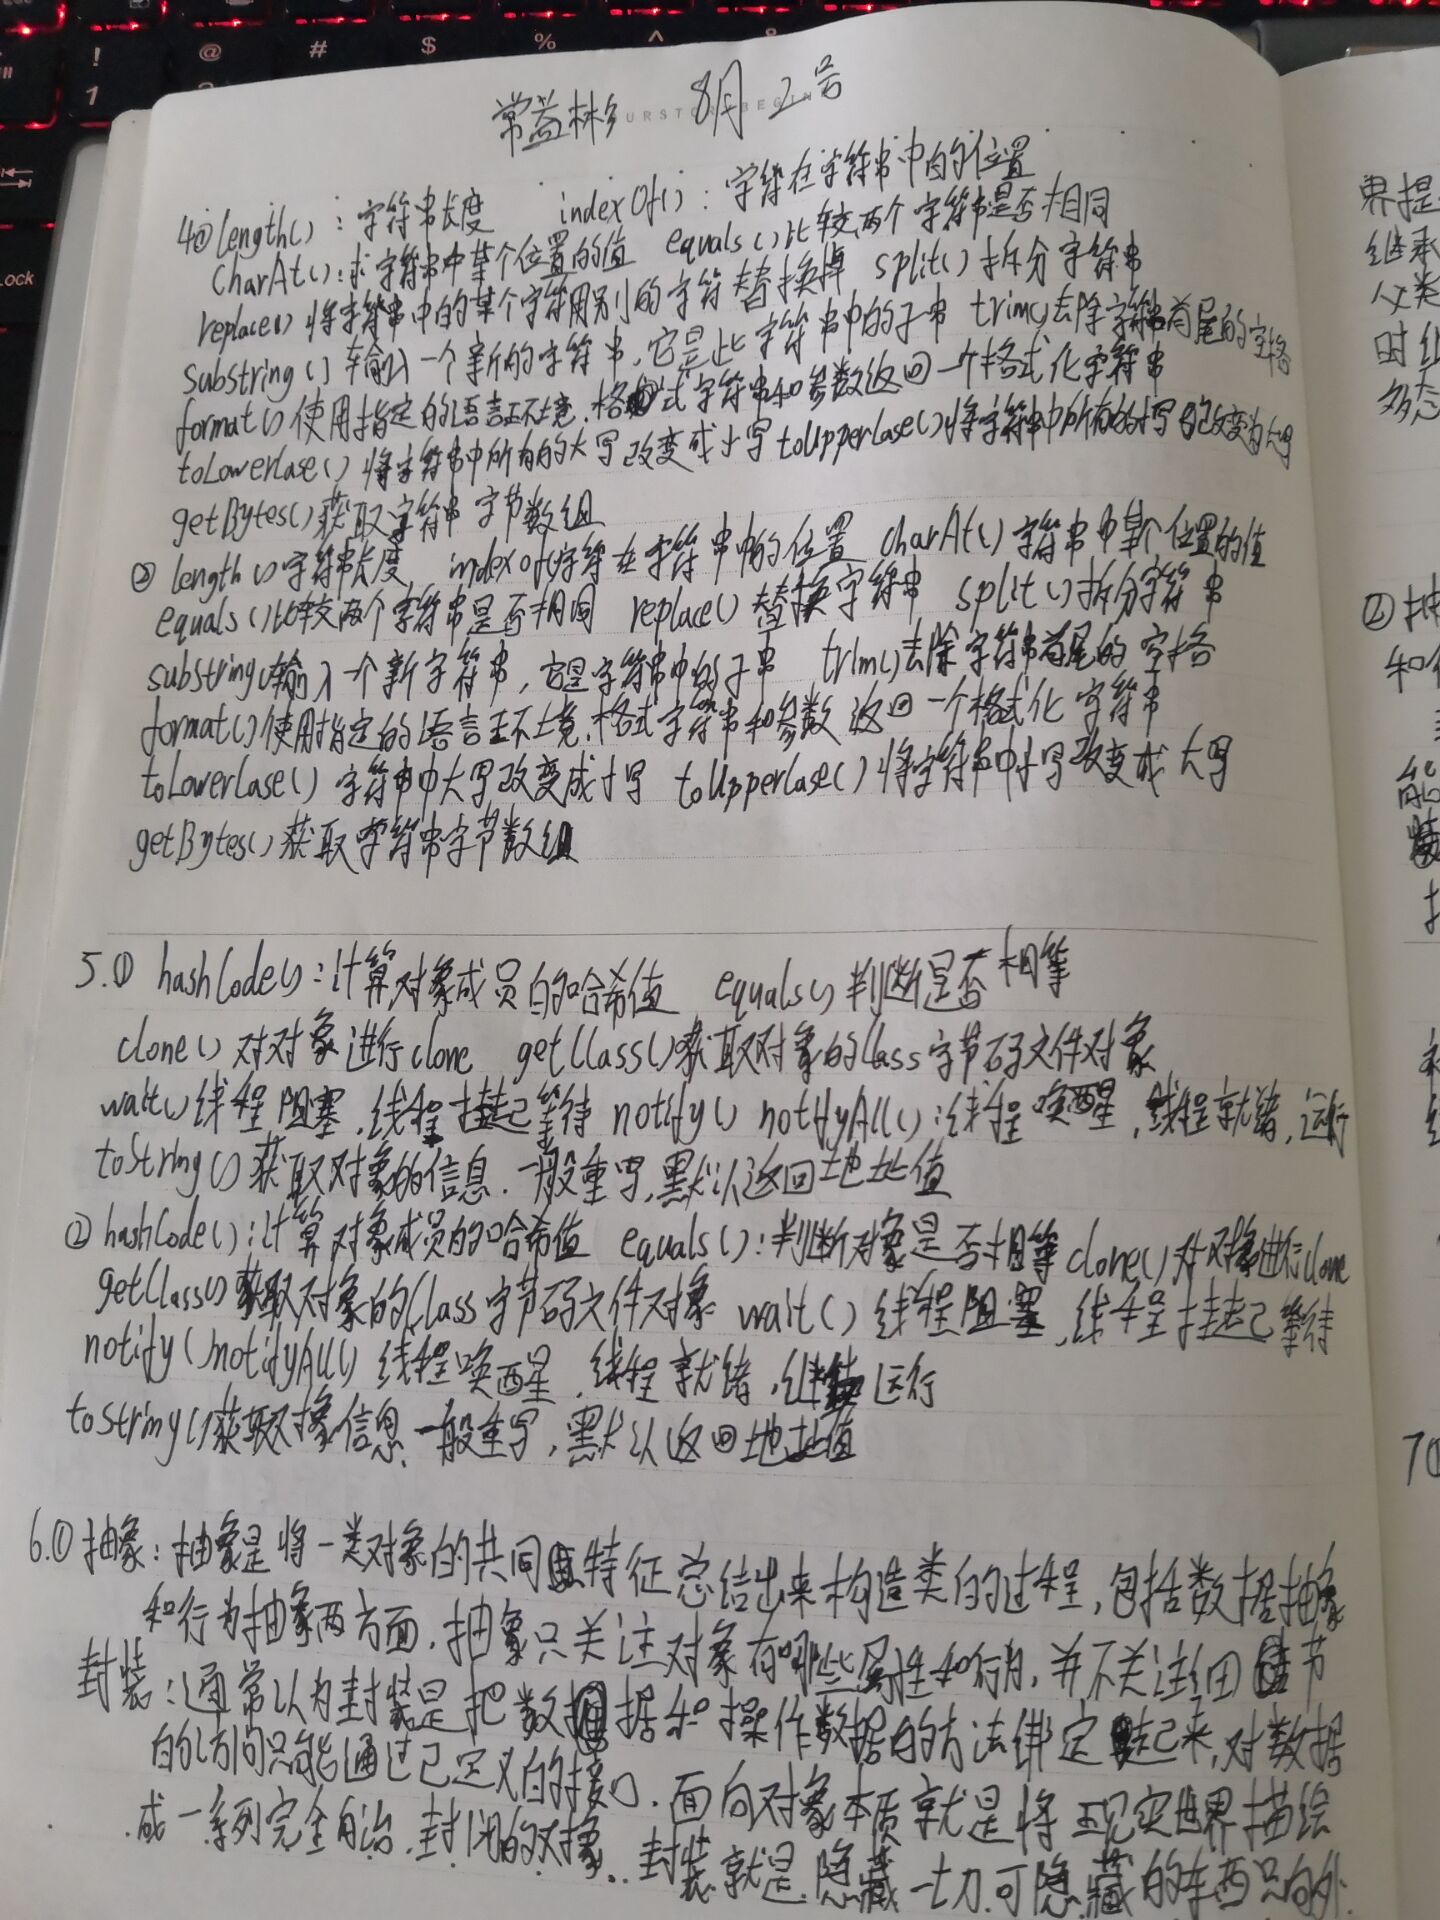 常益彬 8月2号
4.① length()：字符串长度 indexOf()：字符在字符串中的位置
charAt()：求字符串中某个位置的值 equals()比较两个字符串是否相同
replace()将字符串中的某个字符用别的字符替换掉 split()拆分字符串
substring()输入一个新的字符串，它是此字符串中的子串 trim()去除字符串首尾的空格
format()使用指定的语言环境.格式字符串和参数返回一个格式化字符串
toLowerCase()将字符串中所有的大写改变成小写 toUpperCase()将字符串中所有的小写改变为大写
getBytes()获取字符串字节数组
② length()字符串长度 indexOf()字符在字符串中的位置 charAt()字符串中某个位置的值
equals()比较两个字符串是否相同 replace()替换字符串 split()拆分字符串
substring()输入一个新字符串，它是字符串中的子串 trim()去除字符串首尾的空格
format()使用指定的语言环境.格式字符串和参数返回一个格式化字符串
toLowerCase()字符串中大写改变成小写 toUpperCase()将字符串中小写改变成大写
getBytes()获取字符串字节数组
5.① hashCode()：计算对象成员的哈希值 equals()判断是否相等
clone()对对象进行clone getClass()获取对象的Class字节码文件对象
wait()线程阻塞，线程挂起等待 notify() notifyAll()：线程唤醒，线程就绪，运行
toString()获取对象的信息.一般重写，默认返回地址值
② hashCode()：计算对象成员的哈希值 equals()：判断对象是否相等 clone()对对象进行clone
getClass()获取对象的Class字节码文件对象 wait()线程阻塞，线程挂起等待
notify()notifyAll()线程唤醒，线程就绪，继续运行
toString()获取对象信息.一般重写，默认返回地址值
6.①抽象：抽象是将一类对象的共同特征总结出来构造类的过程，包括数据抽象
和行为抽象两方面，抽象只关注对象有哪些属性和行为，并不关注细节
封装：通常认为封装是把数据和操作数据的方法绑定起来，对数据
的访问只能通过已定义的接口.面向对象本质就是将现实世界描绘
成一系列完全自治.封闭的对象..封装就是隐藏一切可隐藏的东西只向外
界提
继承
父类
时
多态
② 抽
和
能
7①